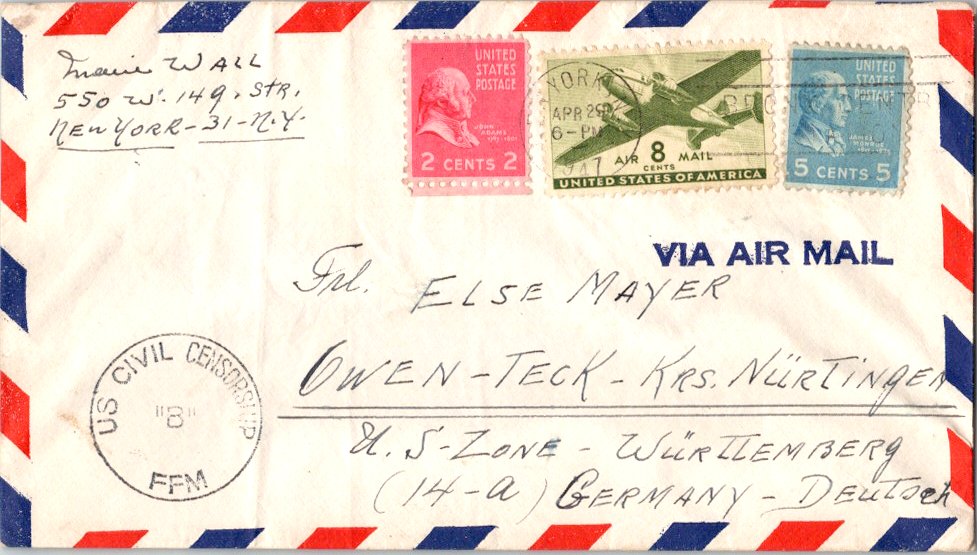 Marie WALL
550 W. 149. STR.
NEW YORK-31-N.Y.
UNITED
STATES
POSTAGE
JOHN
ADAMS
2 CENTS 2
YORK
APR 29
6-PM
1947
AIR 8 MAIL
CENTS
UNITED STATES OF AMERICA
UNITED
STATES
POSTAGE
JAMES
MONROE
5 CENTS 5
VIA AIR MAIL
Frl. ELSE MAYER
OWEN-TECK-KRS. NÜRTINGEN
U.S-ZONE - WÜRTTEMBERG
(14-a) GERMANY - DEUTSCH
US CIVIL CENSORSHIP
"8"
FFM